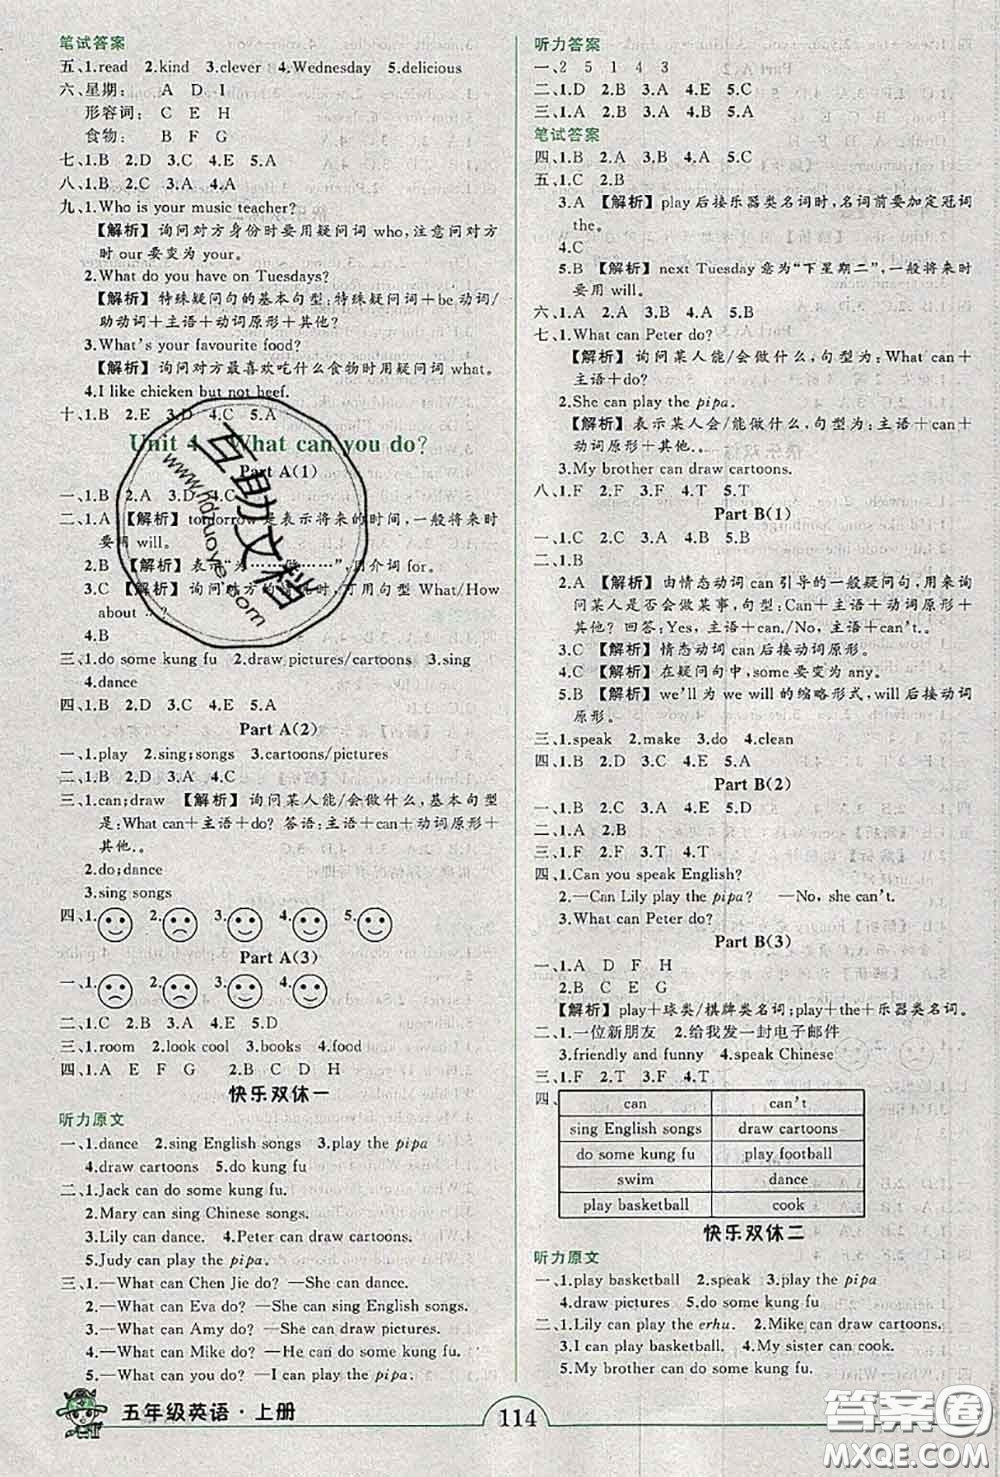 笔试答案
五、1.read 2.kind 3.clever 4.Wednesday 5.delicious
六、星期: A D I
形容词: C E H
食物: B F G
七、1.B 2.D 3.C 4.E 5.A
八、1.B 2.C 3.A 4.A
九、1.Who is your music teacher?
【解析】询问对方身份时要用疑问词 who,注意问对方
时 our 要变为 your。
2.What do you have on Tuesdays?
【解析】特殊疑问句的基本句型:特殊疑问词+be 动词/
助动词+主语+动词原形+其他?
3.What's your favourite food?
【解析】询问对方最喜欢吃什么食物时用疑问词 what。
4.I like chicken but not beef.
十、1.B 2.E 3.D 4.C 5.A
Unit 4 What can you do?
Part A(1)
一、1.B 2.A 3.D 4.C
二、1.A 【解析】tomorrow 是表示将来的时间,一般将来时
要用 will。
2.B 【解析】表示“为……做……”,用介词 for。
3.C 【解析】询问对方的情况时,可用句型 What/How
about ...?
4.B
三、1.do some kung fu 2.draw pictures/cartoons 3.sing
4.dance
四、1.B 2.D 3.C 4.E 5.A
Part A(2)
一、1.play 2.sing;songs 3.cartoons/pictures
二、1.B 2.D 3.A 4.C
三、1.can;draw 【解析】询问某人能/会做什么,基本句型
是:What can+主语+do? 答语:主语+can+动词原形+
其他.。
2.do;dance
3.sing songs
四、1. 2. 3. 4. 5.
Part A(3)
一、1. 2. 3. 4. 5.
二、1.C 2.B 3.A 4.E 5.D
三、1.room 2.look cool 3.books 4.food
四、1.A E F G 2.B C D H
快乐双休一
听力原文
一、1.dance 2.sing English songs 3.play the pipa
4.draw cartoons 5.do kung fu
二、1.Jack can do some kung fu.
2.Mary can sing Chinese songs.
3.Lily can dance. 4.Peter can draw cartoons.
5.Judy can play the pipa.
三、1.—What can Chen Jie do? —She can dance.
2.—What can Eva do? —She can sing English songs.
3.—What can Amy do? —She can draw pictures.
4.—What can Mike do? —He can do some kung fu.
5.—What can you do? —I can play the pipa.
听力答案
一、2 5 1 4 3
二、1.D 2.B 3.A 4.E 5.C
三、1.A 2.C 3.B 4.A 5.B
笔试答案
四、1.B 2.A 3.B 4.A 5.C
五、1.C 2.B
3.A 【解析】play 后接乐器类名词时,名词前要加定冠词
the。
4.C
5.B 【解析】next Tuesday 意为“下星期二”,一般将来时
要用 will。
六、1.A 2.A 3.B 4.A 5.B
七、1.What can Peter do?
【解析】询问某人能/会做什么,句型为:What can+
主语+do?
2.She can play the pipa.
【解析】表示某人会/能做某事,句型为:主语+can+
动词原形+其他.。
3.My brother can draw cartoons.
八、1.F 2.F 3.F 4.T 5.T
Part B(1)
一、1.C 2.B 3.A 4.E 5.D
二、1.B
2.A 【解析】由情态动词 can 引导的一般疑问句,用来询
问某人是否会做某事,句型:Can+主语+动词原形+
其他? 回答:Yes,主语+can./No,主语+can't.。
3.C 【解析】情态动词 can 后接动词原形。
4.C 【解析】在疑问句中,some 要变为 any。
5.B 【解析】we'll 为 we will 的缩略形式,will 后接动词
原形。
三、1.speak 2.make 3.do 4.clean
四、1.B 2.D 3.C 4.E 5.A
Part B(2)
一、1.B 2.C 3.A 4.E 5.D
二、1.A 2.B
三、1.F 2.F 3.T 4.T
四、1.Can you speak English?
2.—Can Lily play the pipa? —No, she can't.
3.What can Peter do?
Part B(3)
一、1.A D F H
2.B C E G
【解析】play+球类/棋牌类名词;play+the+乐器类名词。
二、1.一位新朋友 2.给我发一封电子邮件
3.friendly and funny 4.speak Chinese
三、1.F 2.T 3.F 4.T
四、
can can't
sing English songs draw cartoons
do some kung fu play football
swim dance
play basketball cook
快乐双休二
听力原文
一、1.play basketball 2.speak 3.play the pipa
4.draw pictures 5.do some kung fu
二、1.Lily can play the erhu. 2.Mike can draw cartoons.
3.I can play basketball. 4.My sister can cook.
5.My brother can do some kung fu.
五年级英语·上册
114
互助文档
www.hdzuoye.com
答案圈
MXQE.COM